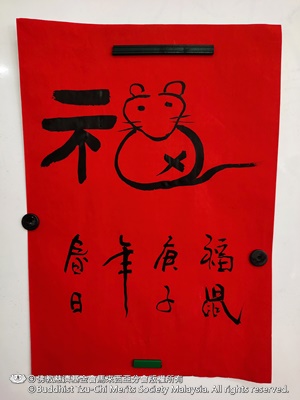 福
福鼠
庚子
年
春日
©佛教慈濟基金會馬來西亞分會版權所有
©Buddhist Tzu-Chi Merits Society Malaysia. All rights reserved.